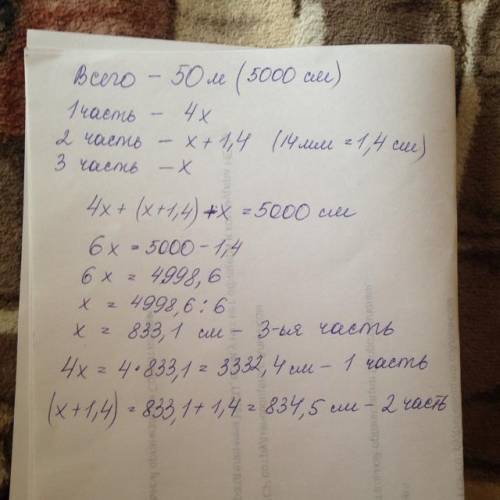 Всего – 50м (5000 см)
1 часть – 4х
2 часть – х + 1,4 (14мм = 1,4 см)
3 часть – х
4х + (х+1,4) + х = 5000 см
6х = 5000 – 1,4
6х = 4998,6
х = 4998,6 : 6
х = 833,1 см – 3-ья часть
4х = 4 · 833,1 = 3332,4 см – 1 часть
(х+1,4) = 833,1 + 1,4 = 834,5 см – 2 часть